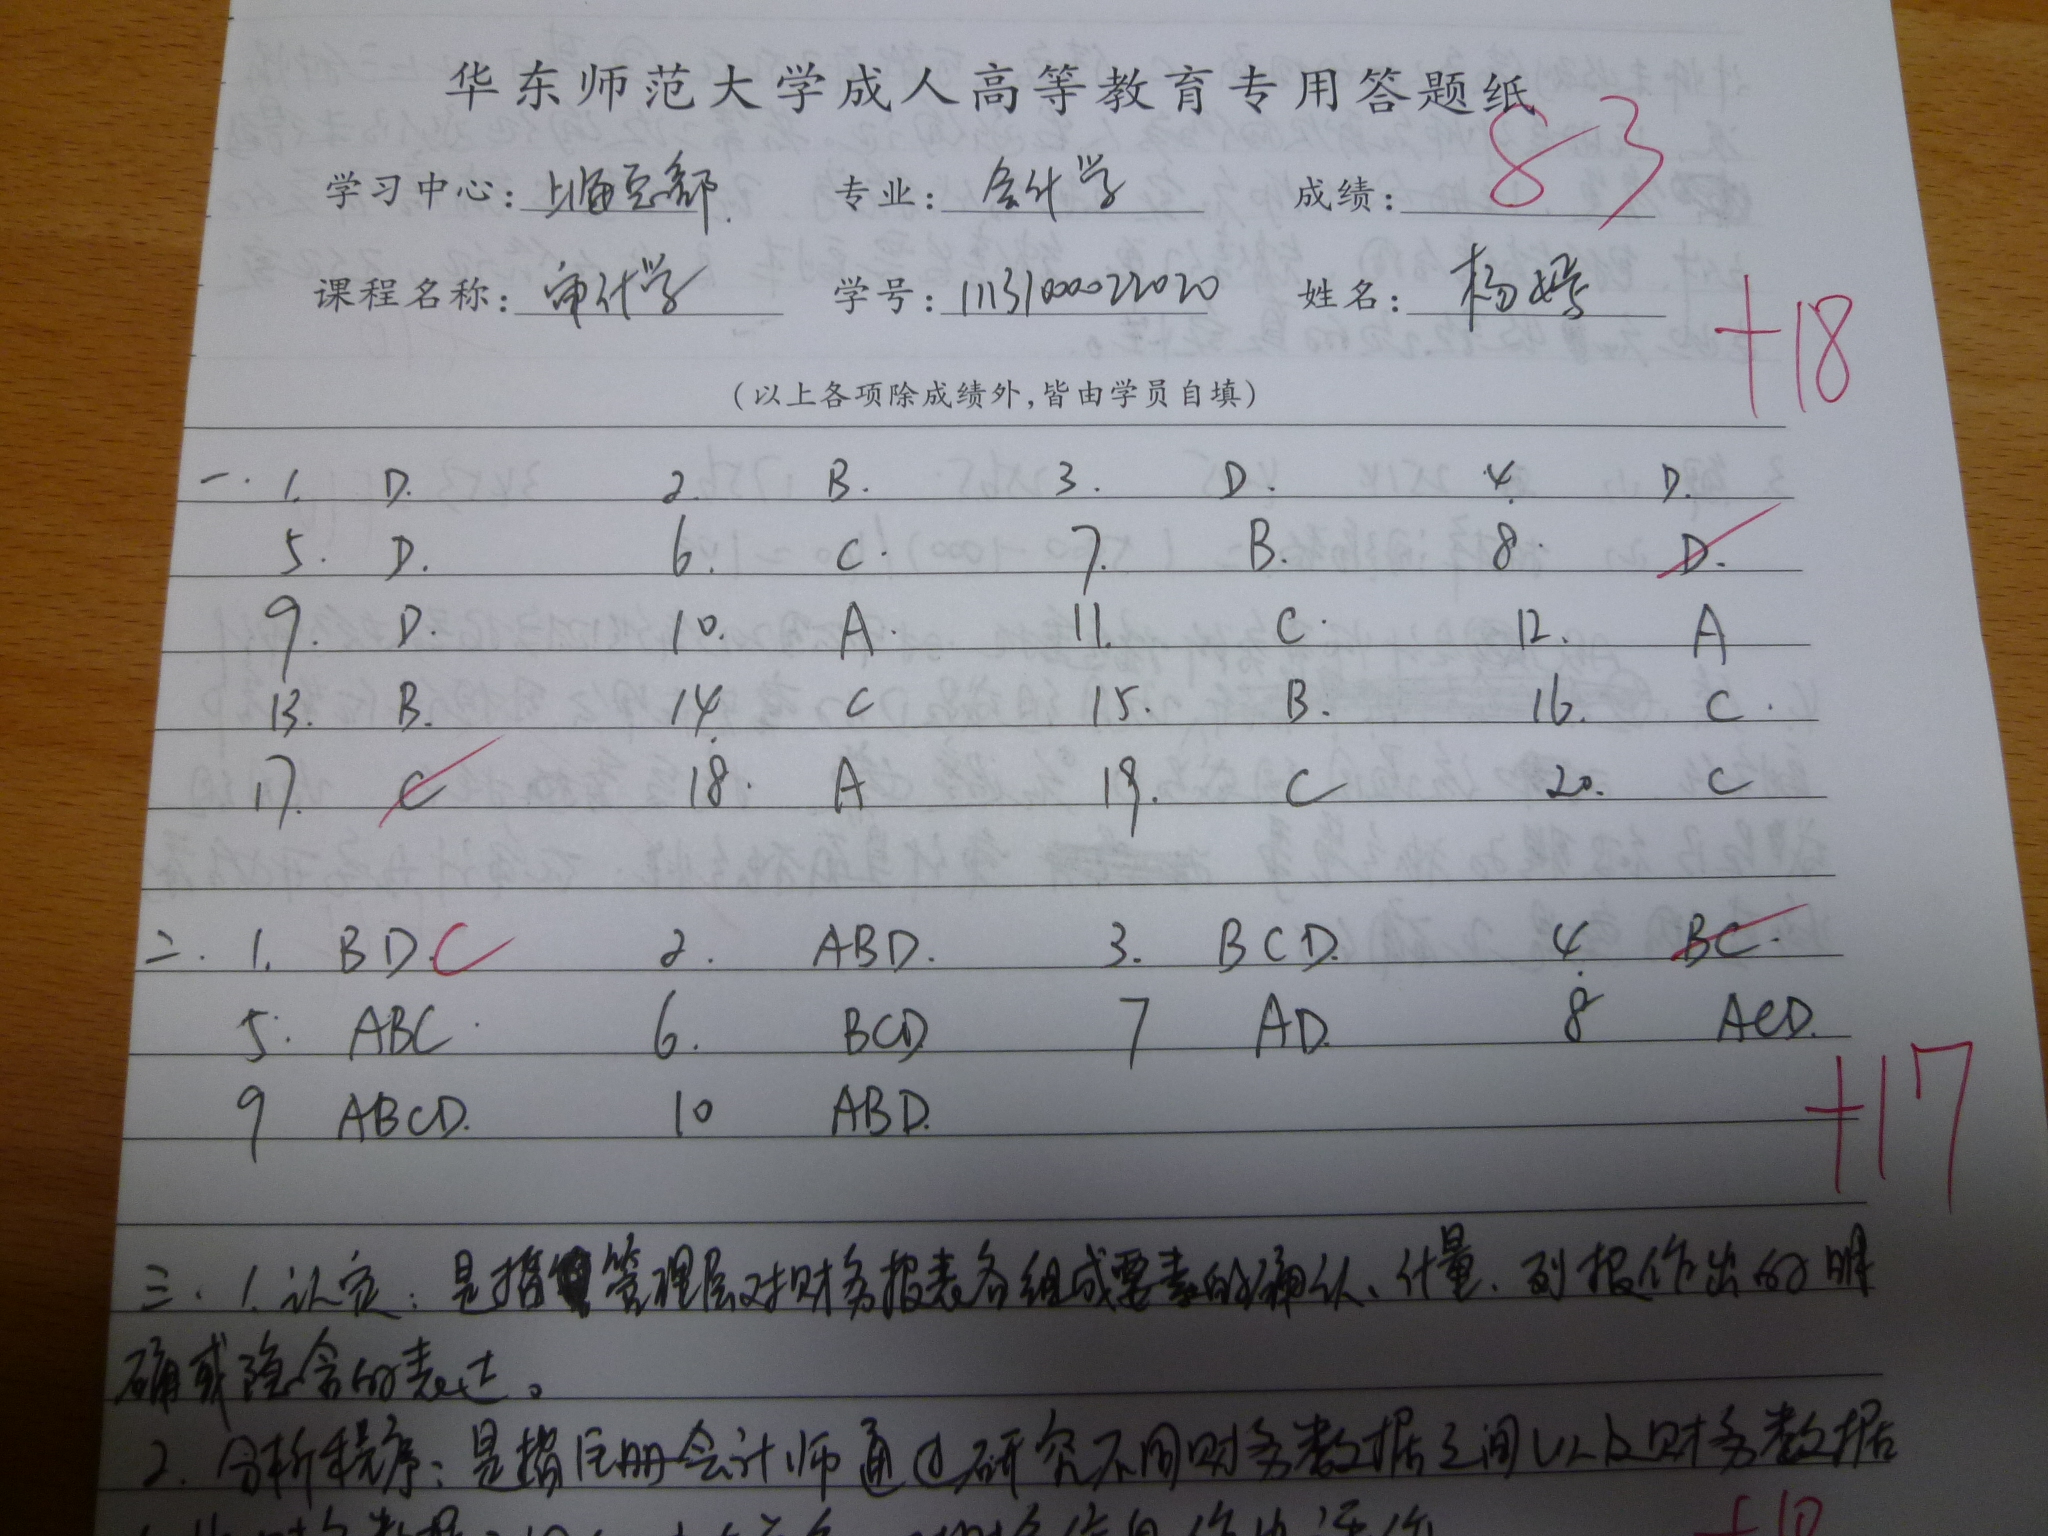 华东师范大学成人高等教育专用答题纸
学习中心: 上海总部. 专业: 会计学 成绩: 83
课程名称: 审计学 学号: 1113100022020 姓名: 杨婷
+18
(以上各项除成绩外,皆由学员自填)
一. 1. D. 2. B. 3. D. 4. D.
5. D. 6. C. 7. B. 8. D.
9. D. 10. A. 11. C. 12. A
13. B. 14. C 15. B. 16. C.
17. C 18. A 19. C 20. C
二. 1. BD.C 2. ABD. 3. BCD. 4. BC.
5. ABC. 6. BCD 7 AD. 8 ACD.
9 ABCD. 10 ABD.
+17
三. 1. 认定: 是指管理层对财务报表各组成要素的确认、计量、列报作出的明
确或隐含的表达。
2. 分析程序: 是指注册会计师通过研究不同财务数据之间以及财务数据
+10